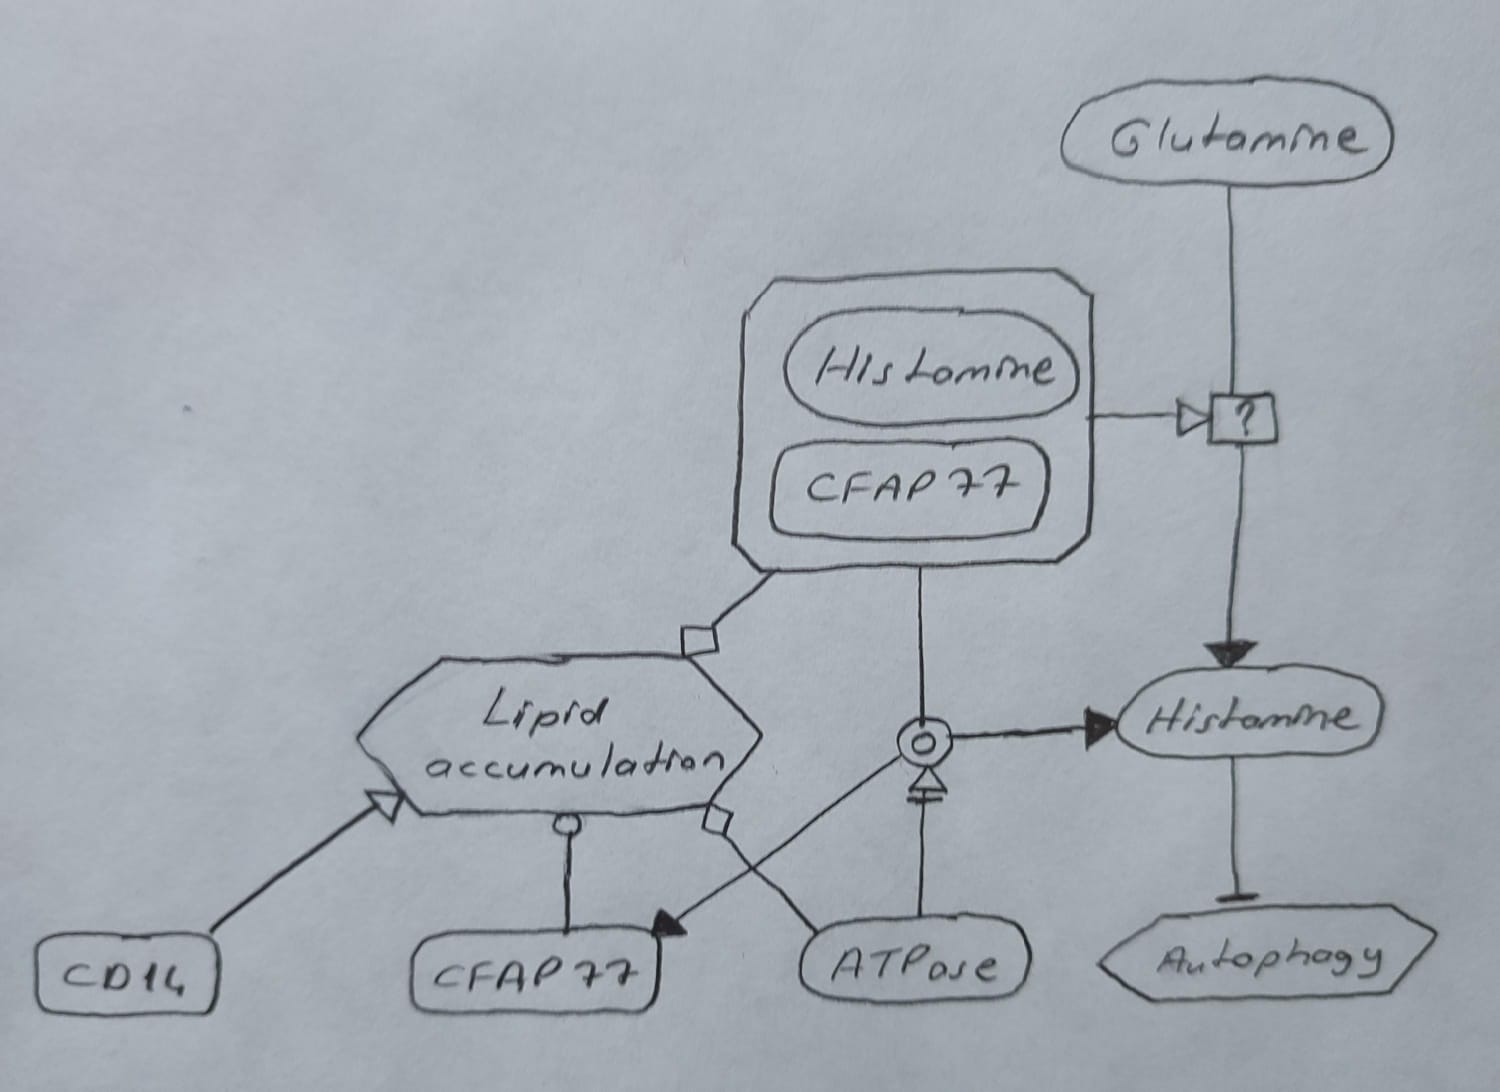 Glutamine
Histamine
?
CFAP77
Lipid
accumulation
Histamine
CD14
CFAP77
ATPase
Autophagy